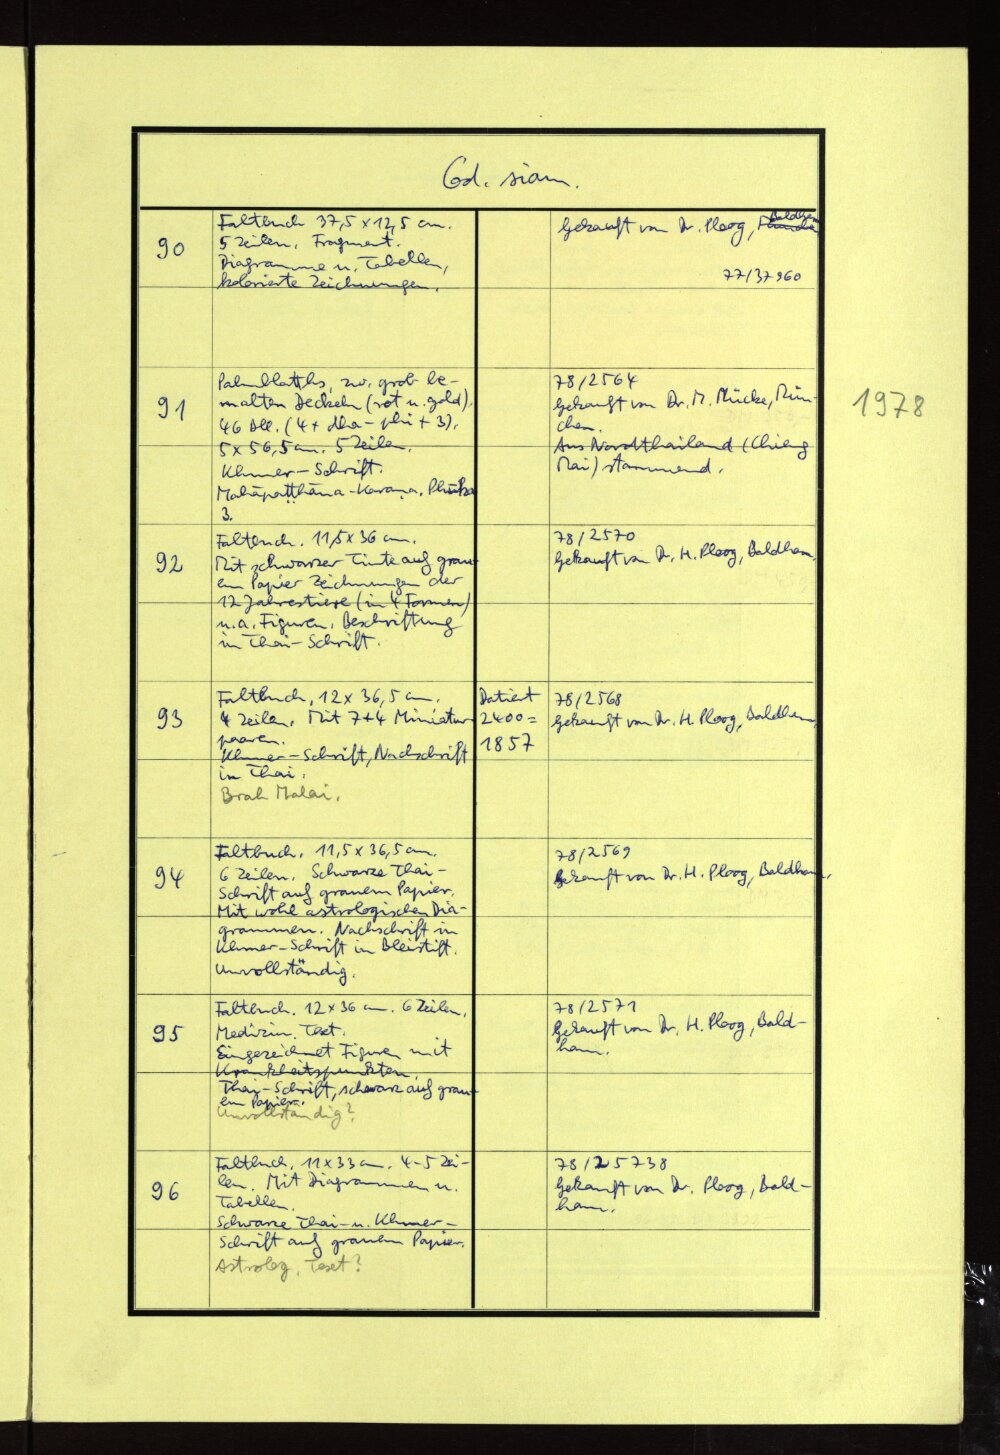 Cod. siam.
90
Faltbuch 37,5 x 12,5 cm.
5 Zeilen. Fragment.
Diagramme u. Tabellen,
kolorierte Zeichnungen.
Gekauft von Dr. Ploog, Baldham
77/37960
91
Palmblatths, zw. grob be-
malten Deckeln (rot u. gold).
46 Bll. (4 + dha - phi + 3).
5 x 56,5 cm. 5 Zeilen.
Khmer-Schrift.
Mahāpaṭṭhāna-Karaṇa. Phūka
3.
78/2564
Gekauft von Dr. M. Mücke, Mün-
chen.
Aus Nordthailand (Chieng
Mai) stammend.
1978
92
Faltbuch. 11,5 x 36 cm.
Mit schwarzer Tinte auf grau-
em Papier Zeichnungen der
12 Jahrestiere (in 4 Formen)
u.a. Figuren. Beschriftung
in Thai-Schrift.
78/2570
Gekauft von Dr. H. Ploog, Baldham.
93
Faltbuch, 12 x 36,5 cm.
4 Zeilen. Mit 7+4 Miniatur-
paaren.
Khmer-Schrift, Nachschrift
in Thai.
Brah Malai.
Datiert
2400=
1857
78/2568
Gekauft von Dr. H. Ploog, Baldham,
94
Faltbuch. 11,5 x 36,5 cm.
6 Zeilen. Schwarze Thai-
Schrift auf grauem Papier.
Mit wohl astrologischen Dia-
grammen. Nachschrift in
Khmer-Schrift in Bleistift.
Unvollständig.
78/2569
Gekauft von Dr. H. Ploog, Baldham.
95
Faltbuch. 12 x 36 cm. 6 Zeilen.
Medizin. Text.
Eingezeichnet Figuren mit
Krankheitspunkten.
Thai-Schrift, schwarz auf grau-
em Papier.
Unvollständig?
78/2571
Gekauft von Dr. H. Ploog, Bald-
ham.
96
Faltbuch. 11 x 33 cm. 4-5 Zei-
len. Mit Diagrammen u.
Tabellen.
Schwarze Thai- u. Khmer-
Schrift auf grauem Papier.
Astrolog. Text?
78/25738
Gekauft von Dr. Ploog, Bald-
ham.